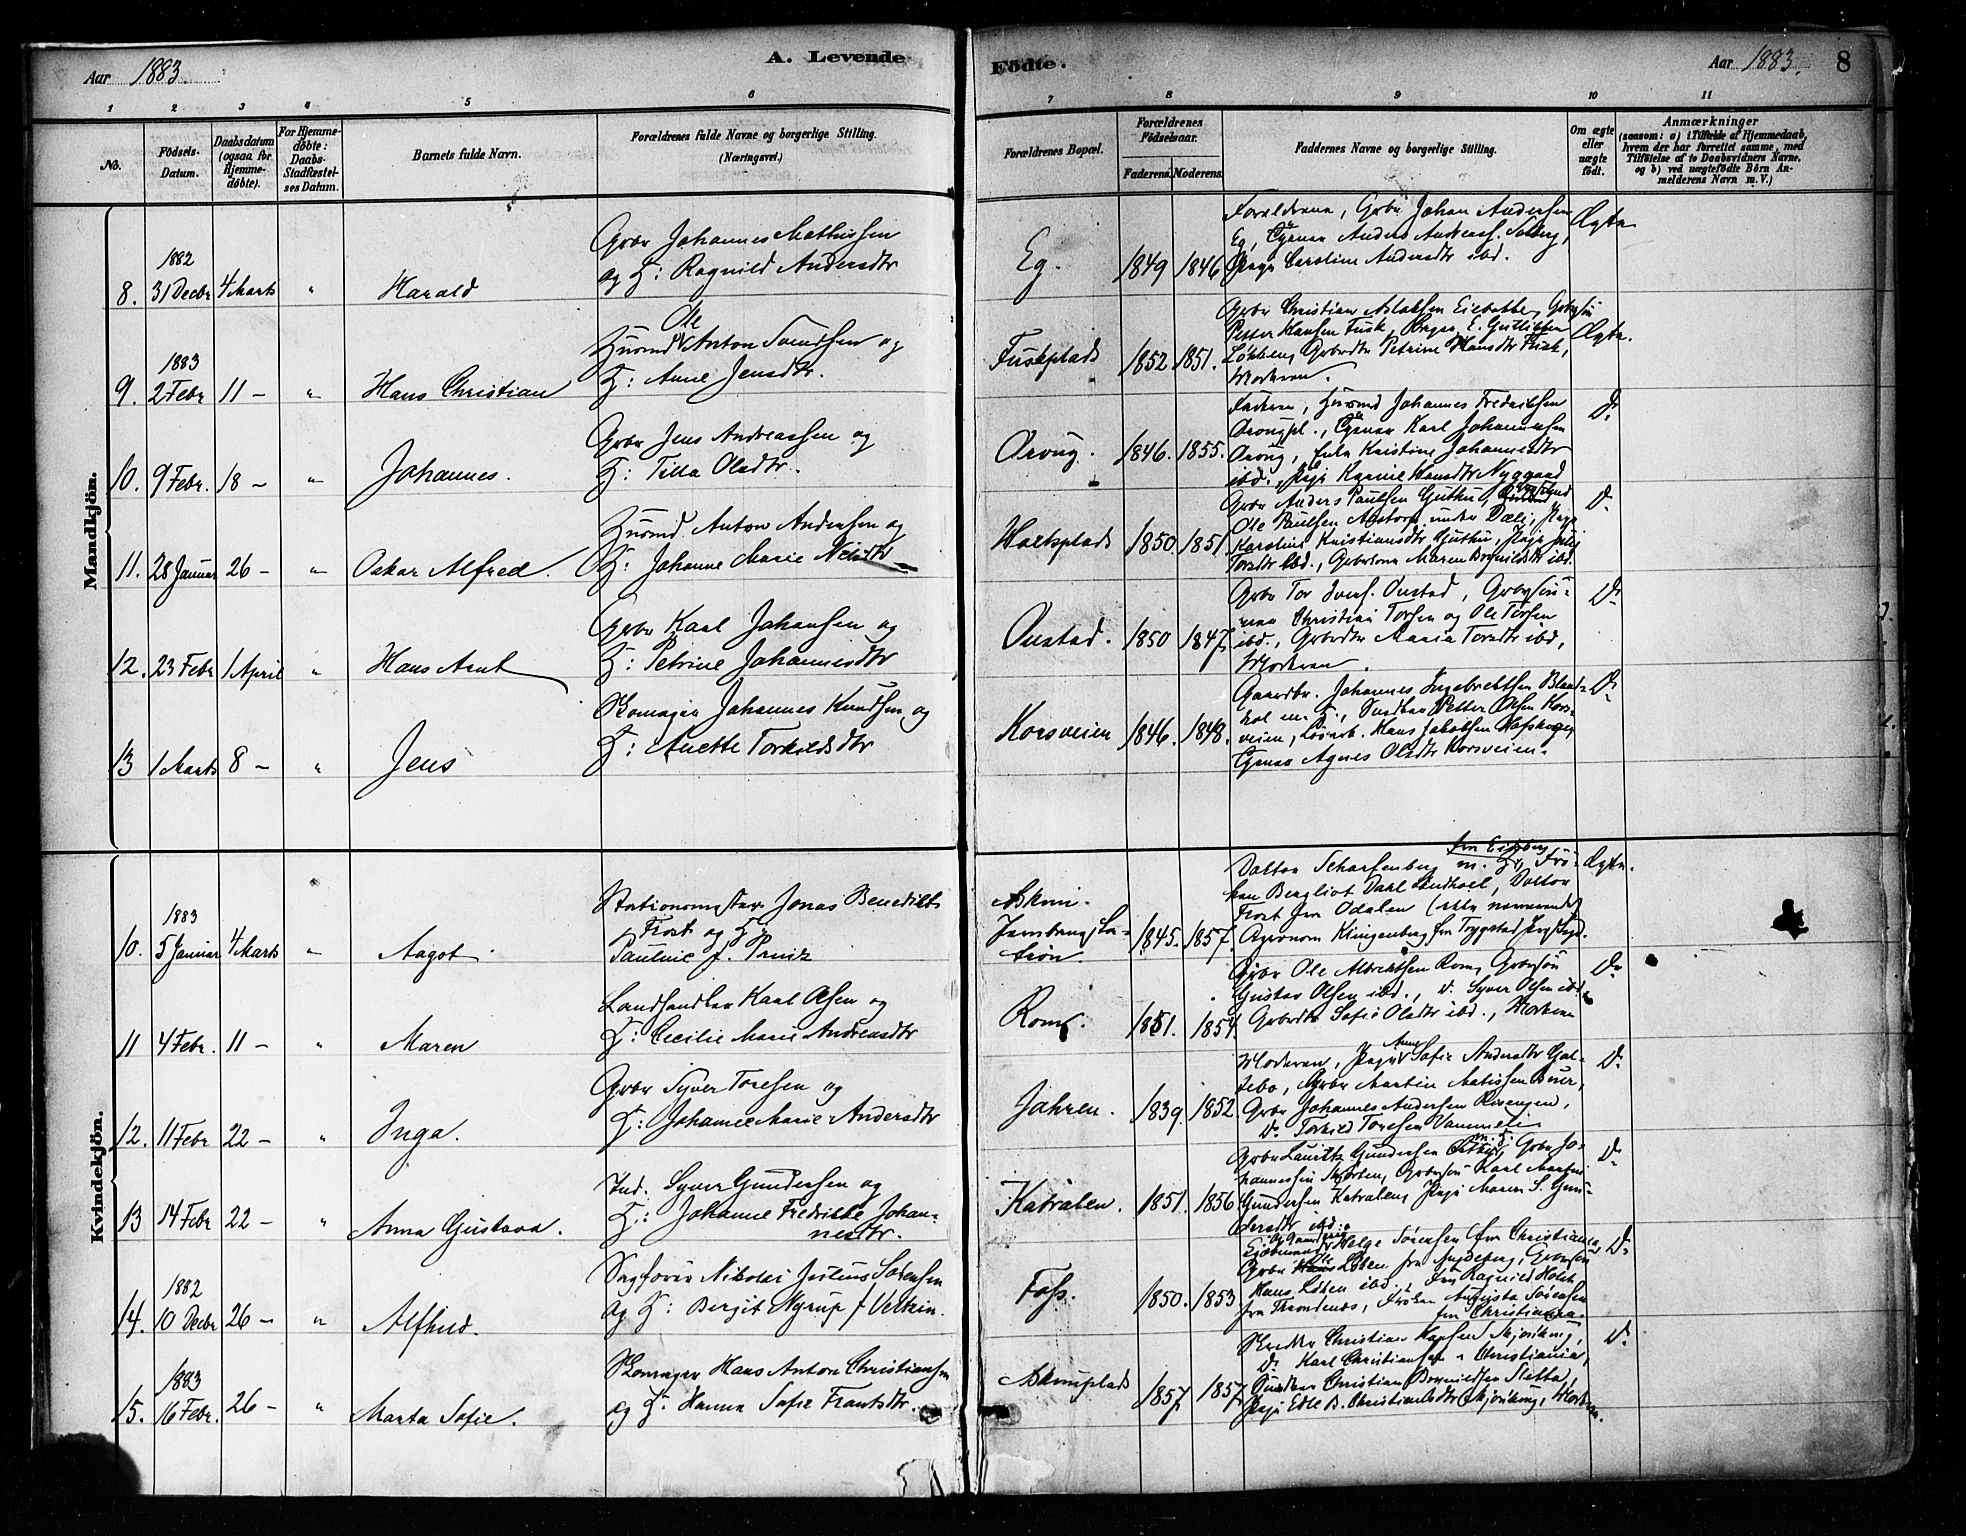 Aar 1883.
A. Levende
Födte.
Aar 1883.
8
1 2 3 4 5 6
7 8 9 10 11
No.
Födsels-Datum.
Daabsdatum (ogsaa for Hjemmedøbte).
For Hjemmedøbte: Daabs-Stadfæstelses Datum.
Barnets fulde Navn.
Forældrenes fulde Navne og borgerlige Stilling.
(Næringsvei.)
Forældrenes Bopæl.
Forældrenes Födselsaar.
Faderens. Moderens.
Faddernes Navne og borgerlige Stilling.
Om ægte eller uægte født.
Anmærkninger
(saasom: a) i Tilfælde af Hjemmedaab,
hvem der har forrettet samme, med
Tilföielse af to Daabsvidners Navne,
og b) ved uægtefödte Börn Anmelderens Navn m. V.)
Mandkjön.
1882
8. 31 Decbr 4 Marts " Harald
Grbr Johannes Mathissen
og H: Ragnild Andersdtr
Eg. 1849 1846
Forældrene, Grbr Johan Andersen
Eg, Anders Andreass. Solberg,
Pige Caroline Andersdtr ibd.
Ægte
1883
9. 2 Febr 11 – " Hans Christian
Ole
Husmd Anton Svendsen og
H: Anne Jensdtr.
Fuskplads 1852 1851.
Grbr Christian Aslaksen
Petter Hansen Fusk,
Petrine Hansdtr Fusk,
Moderen.
Ægte.
10. 9 Febr. 18 – " Johannes.
Grbr Jens Andreassen og
H: Tilla Olsdtr.
Oroug. 1846. 1855.
Faderen, Husmd Johannes Fredriksen
Orougpl., Karl Johannesen
Oroug, Enke Kristine Johannesdtr
ibd., Pige Hansdtr Nygaard
D.
11. 28 Januar 26 – " Oskar Alfred.
Husmd Anton Andersen og
H: Johanne Marie Nilsdtr
1850 1851
Grbr Anders Paulsen Guthu,
Ole Paulsen under Dæli, Pige
Karoline Kristiansdtr Guthu, Pige
Torsdtr ibd., Maren ibd.
D.
12. 23 Febr 1 April " Hans Arnt
Grbr Karl Johansen og
H: Petrine Johannesdtr
Onstad. 1850 1847.
Grbr Tor Ivers. Onstad, Grbrsön-
ner Christian Torsen og Ole Torsen
ibd., Grbrdtr Maria Torsdtr ibd,
Moderen.
D.
13 1 Marts 8 – " Jens
Skomager Johannes Knudsen og
H: Anette Torkildsdtr
Korsveien 1846. 1848.
Gaardbr. Johannes Ingebrethsen
m. H., Petter Olsen Kors-
veien, Hans Jakobsen
Agnes Olsdtr Korsveien.
D.
Kvindekjön.
1883
10. 5 Januar 4 Marts " Aagot.
Stationsmester Jonas Benedikts
Frost og H:
Pauline f. Printz
Askim
Jernbanesta-
tion. 1845. 1857.
Doktor Scharfenberg m. Fr., Frö-
ken Bergliot Dahl, Doktor
Frost fra Odalen
Agronom Klingenberg fra Trygstad
Ægte.
11 4 Febr. 11 – " Maren
Landhandler Karl Olsen og
H: Cecilie Marie Andreasdtr
Rom. 1851. 1854.
Grbr Ole Albrektsen Rom, Grbrsön
Gustav Olsen ibd., D. Syver Olsen ibd.
Grbrdtr Sofie Olsdtr ibd., Moderen
D.
12. 11 Febr 22 – " Inga.
Grbr Syver Toresen og
H: Johanne Marie Andersdtr
Jahren. 1839 1852.
Moderen, Pige Anne Sofie Andersdtr
Grbr Martin Matissen
Grbr Johannes Andersen
D. Torkild Toresen Vammeli
D.
13 14 Febr 22 – " Anna Gustava.
Ind. Syver Gundersen og
H.: Johanne Fredrikke Johan-
nesdtr.
Katralen. 1851. 1856
Grbr Lauritz Gundersen m. H., Grbr Jo-
hannes Karl Martin
Gundersen Katralen, Pige Maren S. Gun-
dersdtr ibd.
D.
1882
14. 10 Decbr 26 – " Alfhild.
Sagförer Nikolai Julius Sörensen
og H: Bergit Nyrup f.
Foss. 1850. 1853
Helge Sörensen fra Christiania,
Grbr Ole Löken fra
Hans Löken ibd., Fru Ragnild Holst
fra Throndenes, Fröken Augusta Sörensen
fra Christiania
D.
1883
15. 16 Febr. 26 – " Marta Sofie.
Skomager Hans Anton Christiansen
og H. Hanna Sofie Frantsdtr.
Askimplads 1857 1857
Skrædder Christian
D. Karl Christiansen Christiania,
Christian Sletta,
Pige Edle B. Christiansdtr Moderen.
D.